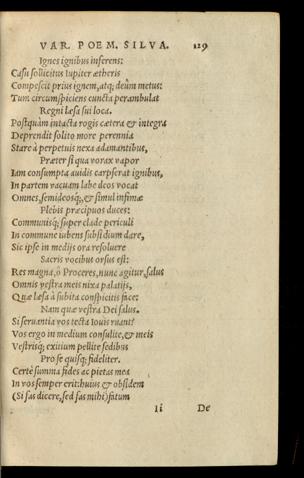 VAR. POEM. SILVA. 129
Ignes ignibus inferens:
Casu sollicitus Iupiter ætheris
Compescit prius ignem, atq; deûm metus:
Tum circumspiciens cuncta perambulat
Regni læsa sui loca.
Postquàm intacta rogis cætera & integra
Deprendit solito more perennia
Stare à perpetuis nexa adamantibus,
Præter si qua vorax vapor
Iam consumpta auidis carpserat ignibus,
In partem vacuam labe deos vocat
Omnes, semideosq;, & simul infimæ
Plebis præcipuos duces:
Communisq; super clade periculi
In commune iubens subsidium dare,
Sic ipse in medijs ora resoluere
Sacris vocibus orsus est:
Res magna, ô Proceres, nunc agitur, salus
Omnis vestra meis nixa palatijs,
Quæ læsa à subita conspicitis face:
Nam quæ vestra Dei salus.
Si seruantia vos tecta Iouis ruant?
Vos ergo in medium consulite, & meis
Vestrisq; exitium pellite sedibus
Pro se quisq; fideliter.
Certè summa fides ac pietas mea
In vos semper erit: huius & obsidem
(Si fas dicere, sed fas mihi) fatum
Ii De